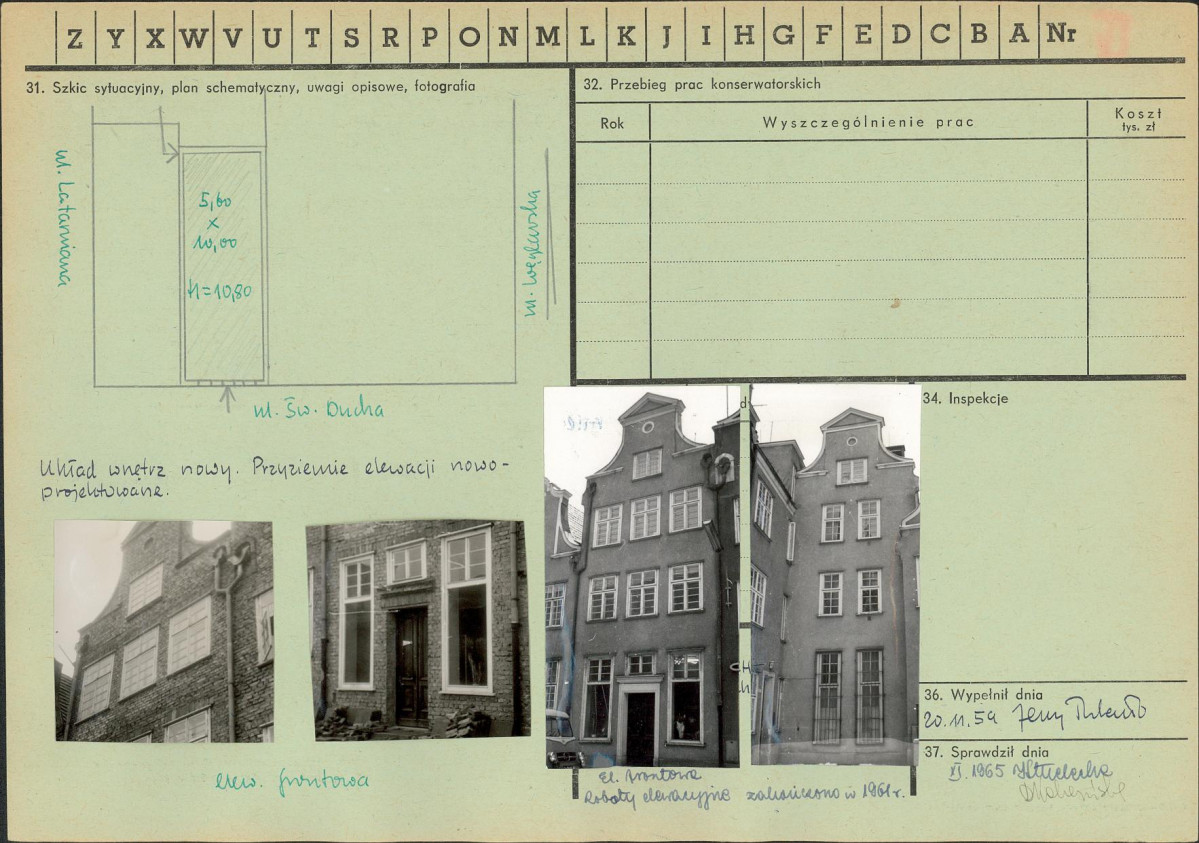 Z Y X W V U T S R P O N M L K J I H G F E D C B A Nr
31. Szkic sytuacyjny, plan schematyczny, uwagi opisowe, fotografia
ul. Latarniana
5,60
x
10,00
H=10,80
ul. Węglarska
ul. Św. Ducha
Układ wnętrz nowy. Przyziemie elewacji nowo-
projektowane.
elew. frontowa
32. Przebieg prac konserwatorskich
Rok
Wyszczególnienie prac
Koszt
tys. zł
El. frontowa
Roboty elewacyjne zakończono w 1961 r.
34. Inspekcje
36. Wypełnił dnia
20.11.59 Jerzy
37. Sprawdził dnia
XI. 1965